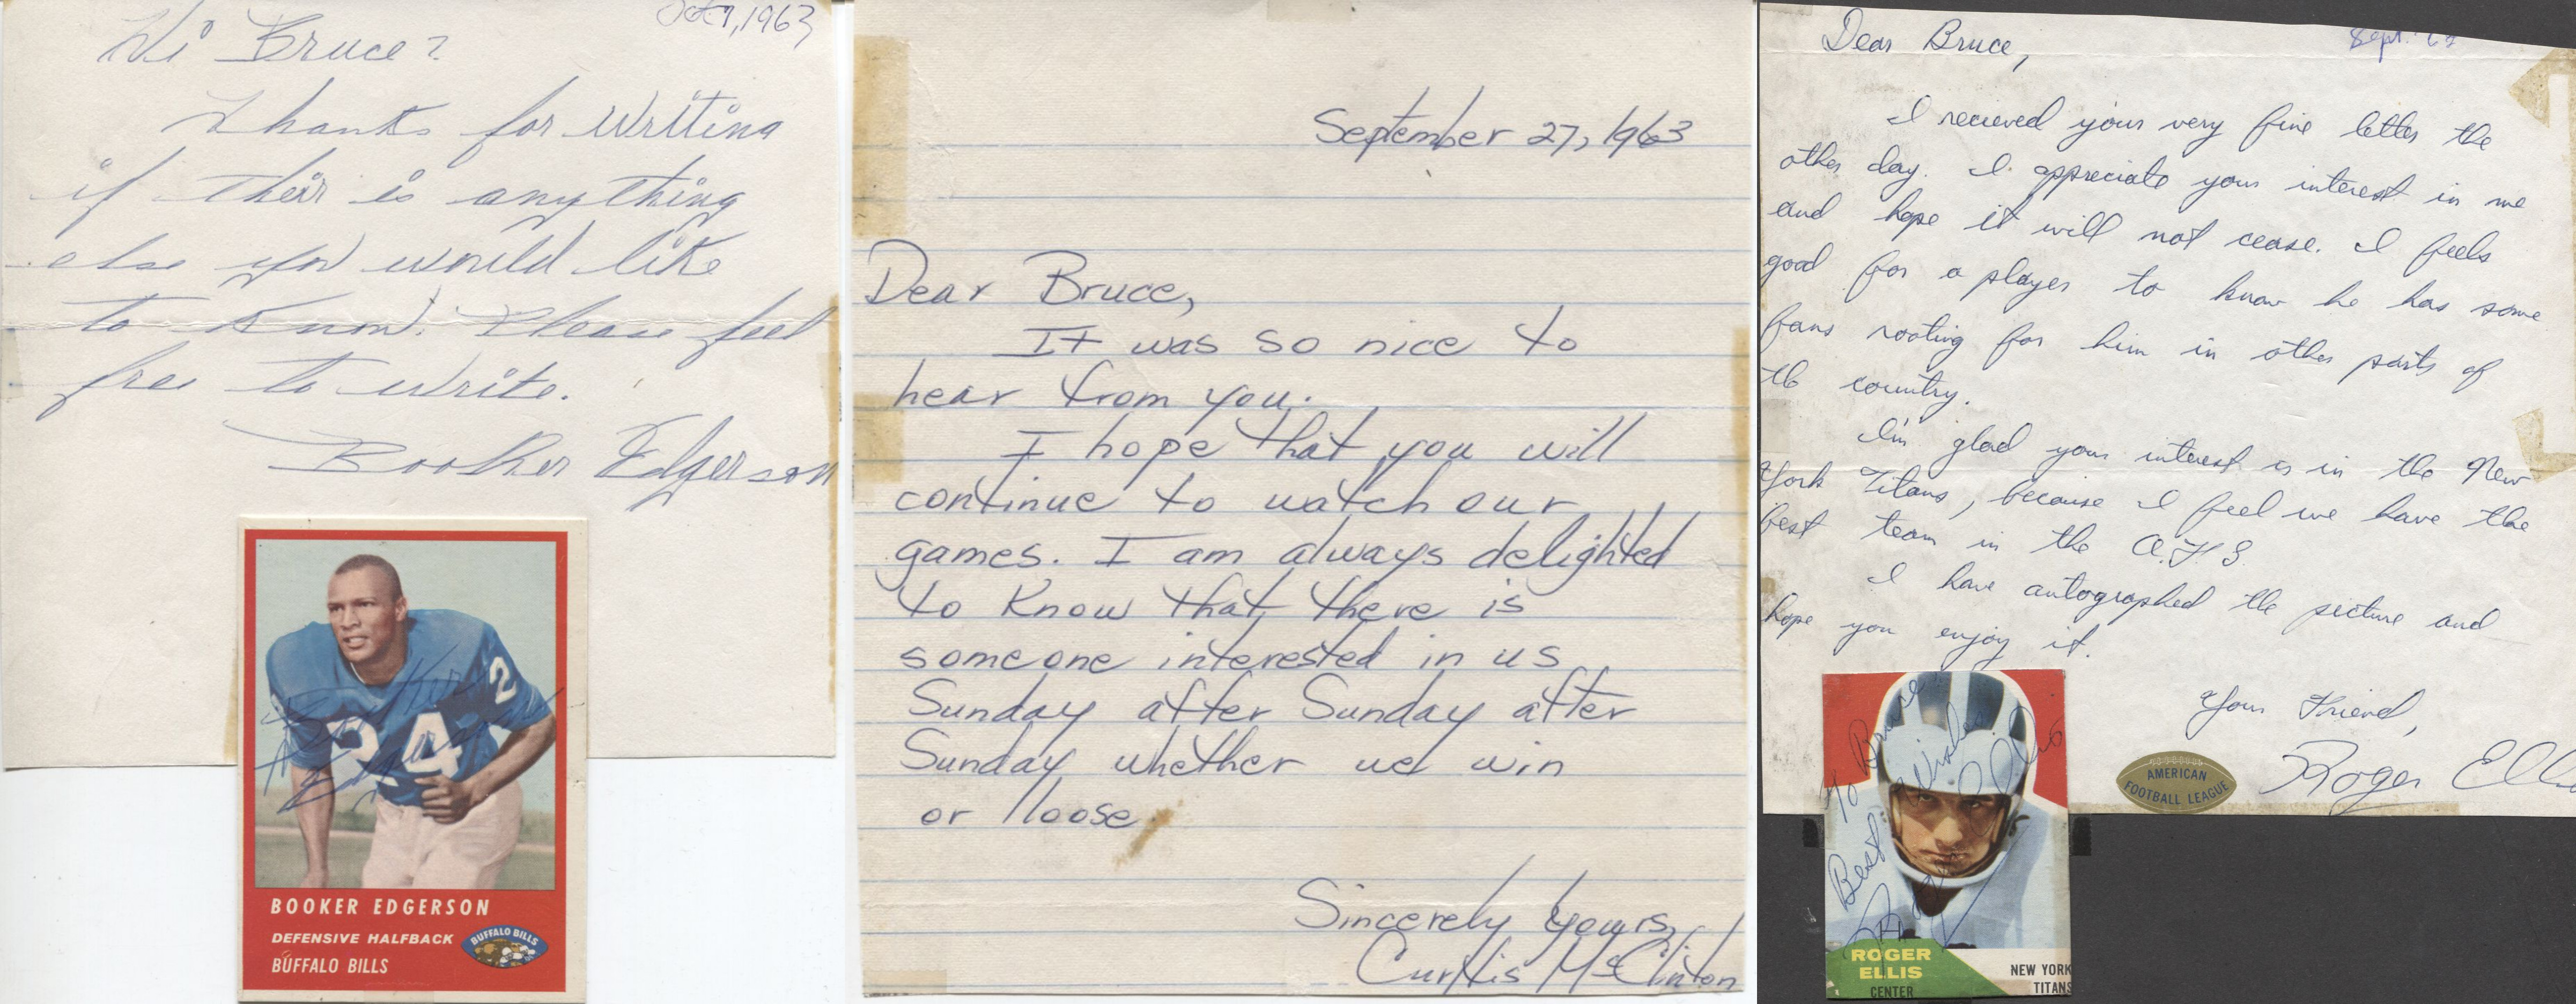 Oct 7, 1963
Hi Bruce?
Thanks for Writing
if their is anything
else you would like
to Know. Please feel
free to write.
Booker Edgerson
24
2
Booker
Edgerson
BOOKER EDGERSON
DEFENSIVE HALFBACK
BUFFALO BILLS
BUFFALO BILLS
September 27, 1963
Dear Bruce,
It was so nice to
hear from you.
I hope that you will
continue to watch our
games. I am always delighted
to Know that there is
someone interested in us
Sunday after Sunday after
Sunday whether we win
or loose
Sincerely yours,
Curtis McClinton
Sept. 62
Dear Bruce,
I recieved your very fine letter the
other day. I appreciate your interest in me
and hope it will not cease. I feels
good for a player to know he has some
fans rooting for him in other parts of
the country.
I'm glad your interest is in the New
York Titans, because I feel we have the
best team in the A.F.L.
I have autographed the picture and
hope you enjoy it.
Your Friend,
Roger Ellis
AMERICAN
FOOTBALL LEAGUE
To Bruce
Best Wishes
Roger Ellis
ROGER
ELLIS
CENTER
NEW YORK
TITANS